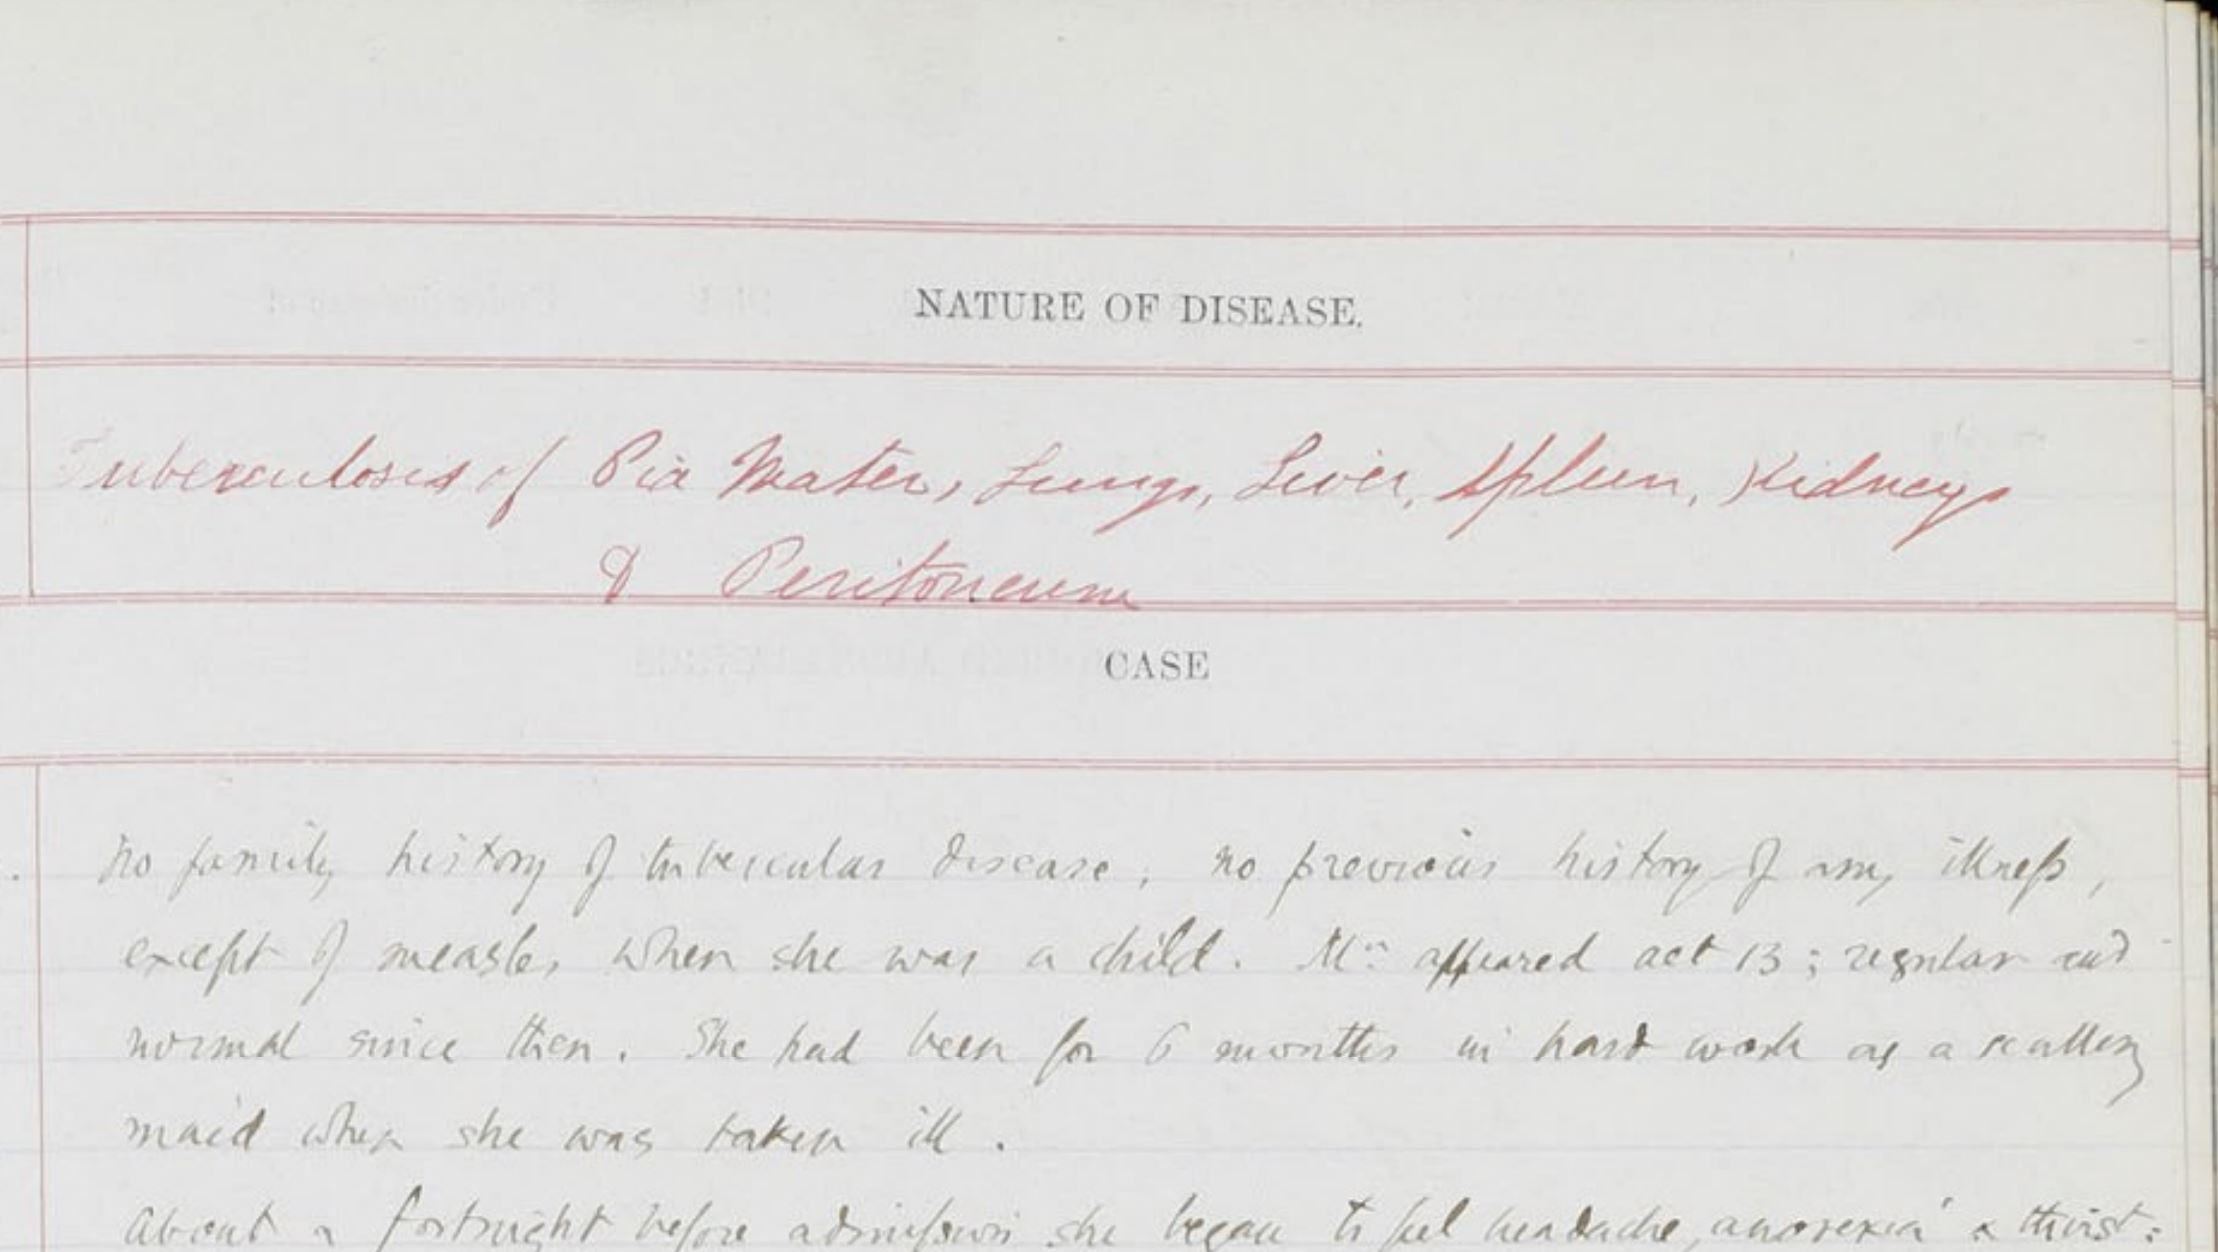 NATURE OF DISEASE.
Tuberculosis of Pia Mater, Lungs, Liver, Spleen, Kidneys
& Peritoneum
CASE
No family history of tubercular disease; no previous history of any illness,
except of measles when she was a child. Mn appeared aet 13; regular and
normal since then. She had been for 6 months in hard work as a scullery
maid when she was taken ill.
About a fortnight before admission she began to feel headache, anorexia & thirst: